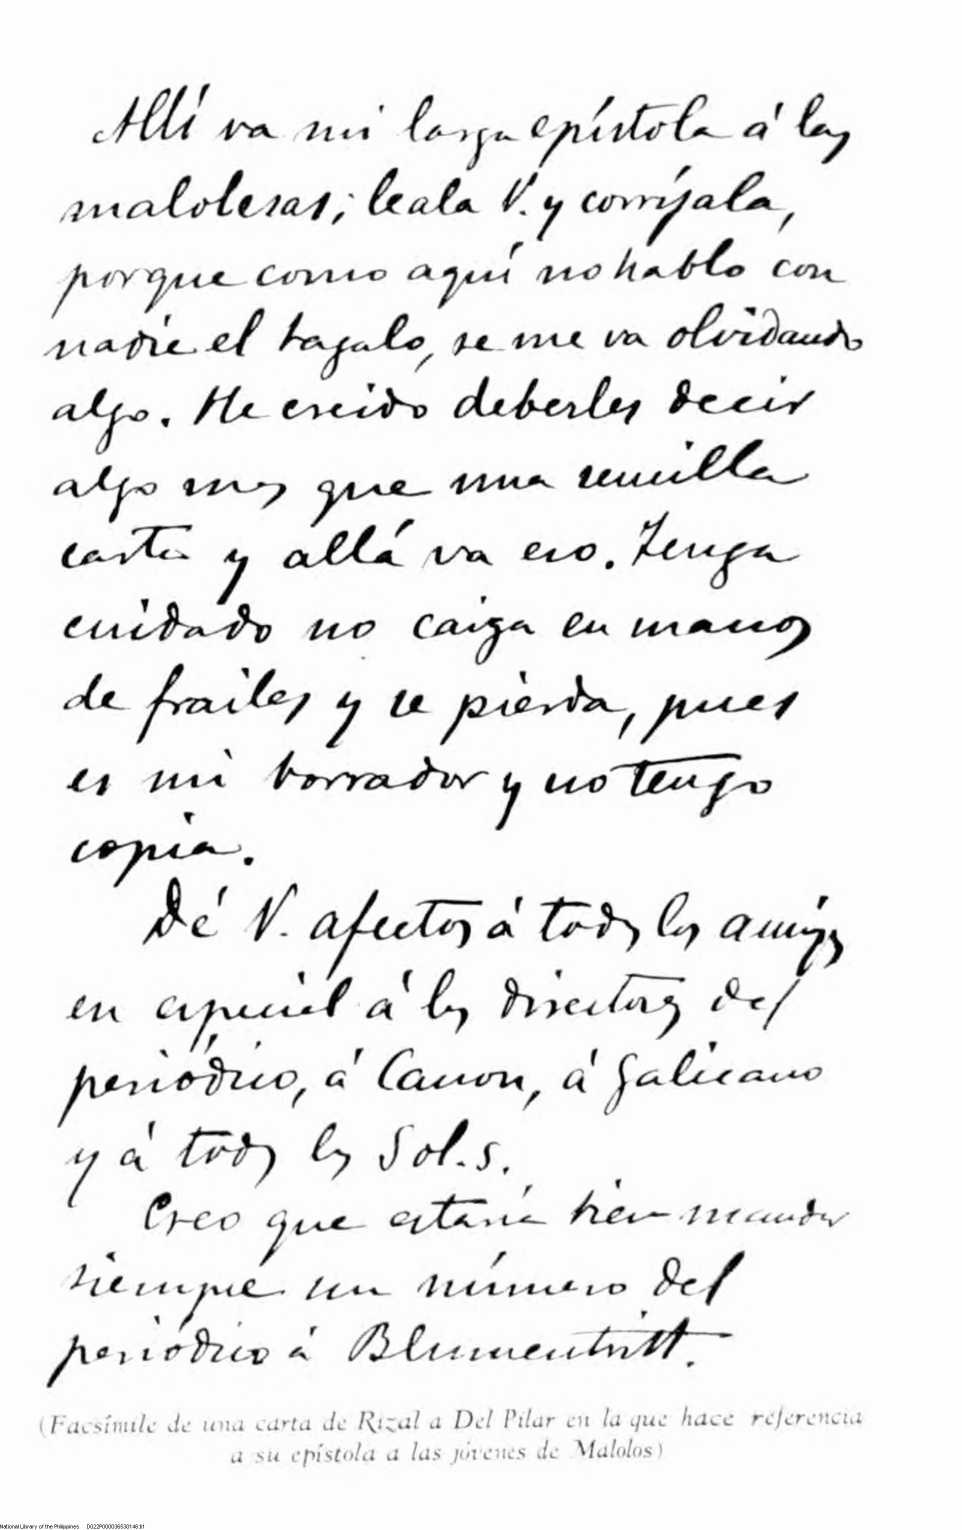 Allí va mi larga epístola á las
malolesas; leala V. y corríjala,
porque como aquí no hablo con
nadie el tagalo, se me va olvidando
algo. He creido deberles decir
algo mas que una sencilla
carta y allá va eso. Tenga
cuidado no caiga en manos
de frailes y se pierda, pues
es mi borrador y no tengo
copia.
Dé V. afectos á todos los amigos
en especial á los directores del
periódico, á Canon, á Galicano
y á todos los Sol.s.
Creo que estaría bien mandar
siempre un número del
periódico á Blumentritt.
(Facsímile de una carta de Rizal a Del Pilar en la que hace referencia
a su epístola a las jóvenes de Malolos)
National Library of the Philippines